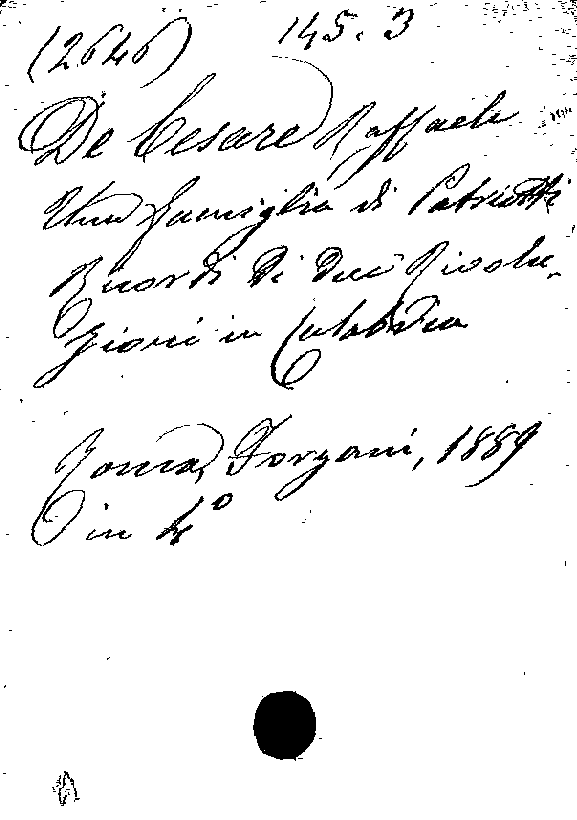 (2646) 145.3
De Cesare Raffaele
Una famiglia di Patriotti
Ricordi di due Rivolu-
zioni in Calabria
Roma, Forzani, 1889
in 4°